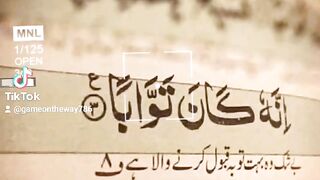 MNL
1/125
OPEN
TikTok
@gameontheway786
اِنَّهٗ كَانَ تَوَّابًا ۝۳
بے شک وہ بہت توبہ قبول کرنے والا ہے ف ۸